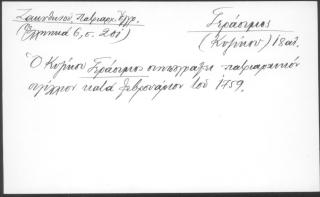 Ζακυνθινού, Πατριαρχ. Έγγρ.
(Ελληνικά 6, σ. 201)
Γεράσιμος
(Κυζίκου) 18 αι.
Ὁ Κυζίκου Γεράσιμος συνυπογράφει πατριαρχικόν
σιγίλλιον κατά Φεβρουάριον τοῦ 1759.